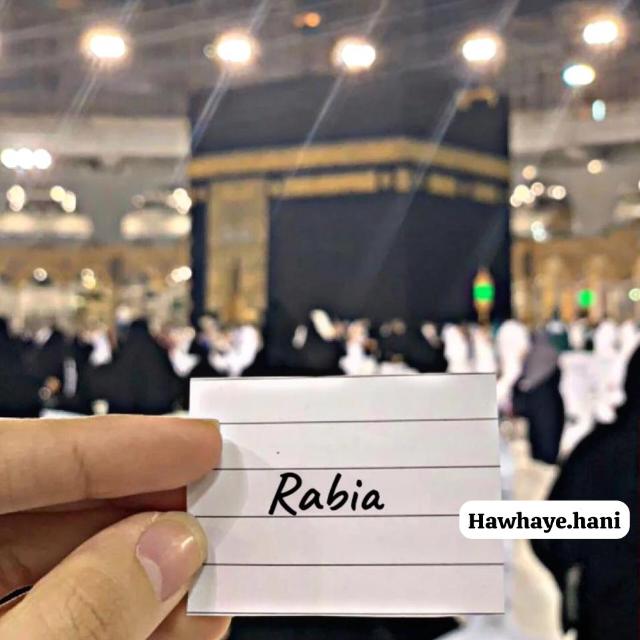 Rabia
Hawhaye.hani